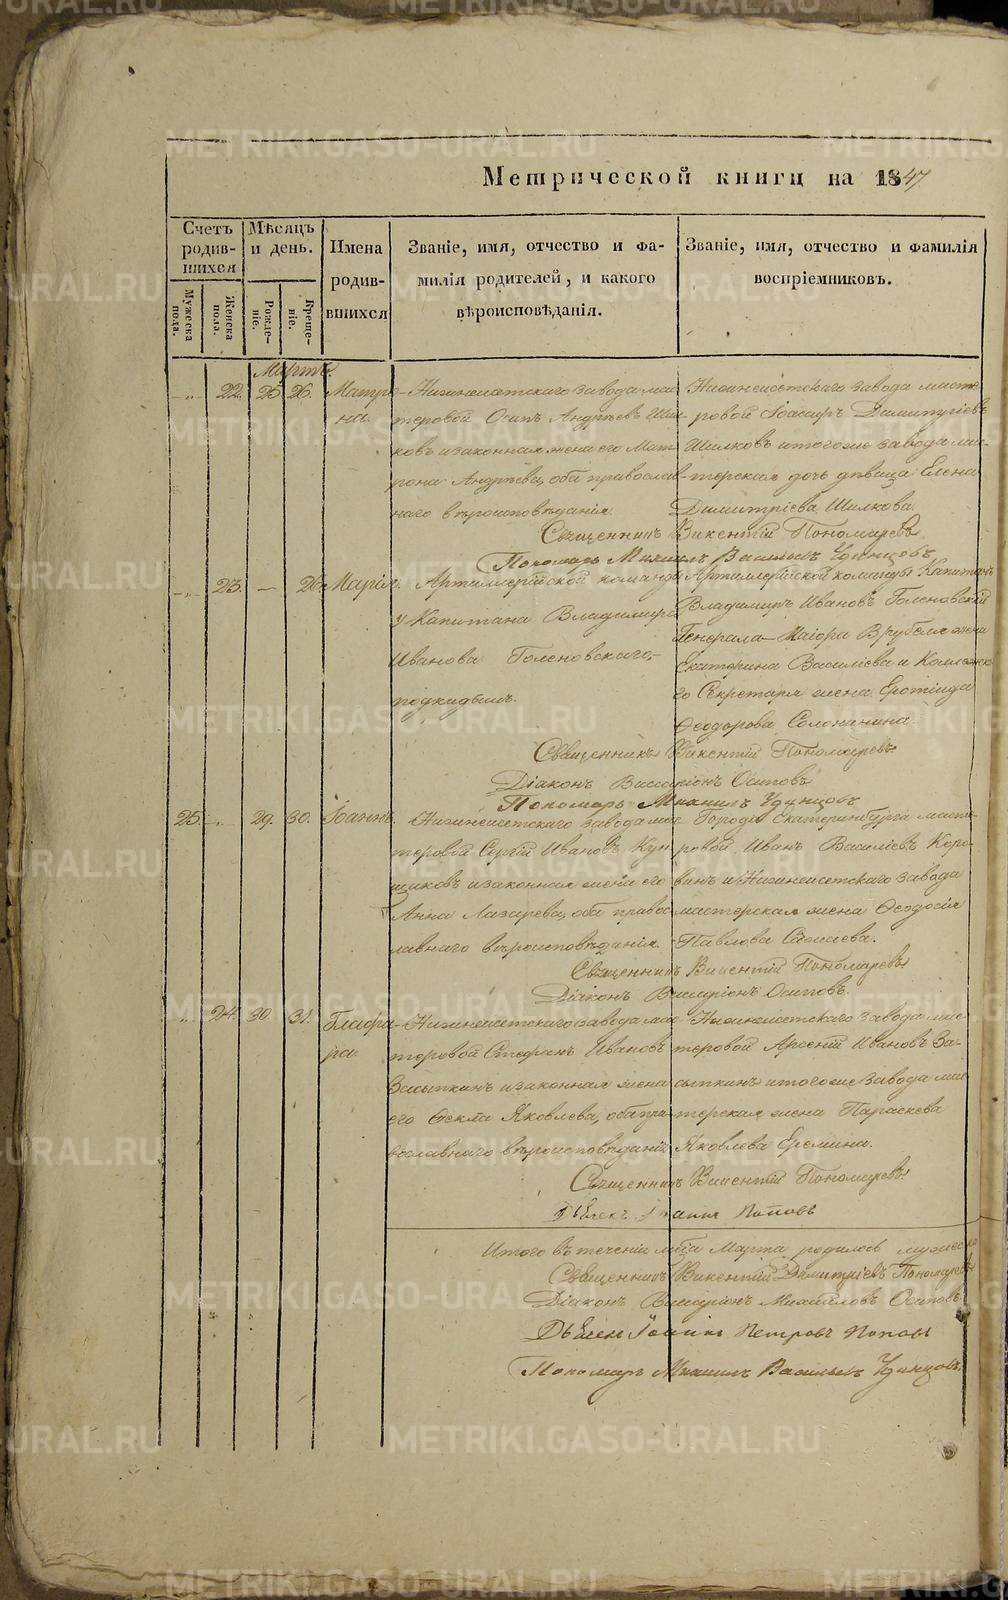 Метрической книги на 1847
Счетъ родив- шихся
Мѣсяцъ и день.
Имена родив- вшихся
Званіе, имя, отчество и фа- милія родителей, и какого вѣроисповѣданія.
Званіе, имя, отчество и фамилія воспріемниковъ.
Мужеска пола.
Женска пола.
Рожде- ніе.
Креще- ніе.
Мартъ.
22. 25 26. Матро-
на.
Нижнеисетскаго завода мас-
теровой Осипъ Андреевъ Шил-
ковъ и законная жена его Мат-
рона Андреева, оба православ-
наго вѣроисповѣданія.
Нижнеисетскаго завода масте-
ровой Іоасафъ Димитріевъ
Шилковъ и тогоже завода мас-
терская дочь дѣвица Елена
Димитріева Шилкова.
Священникъ Викентій Пономаревъ
Пономарь Михаилъ Васильевъ Удинцовъ
23. — 26. Марія.
Артиллерійской команды
у Капитана Владимира
Иванова Голеновскаго,
подкидышъ.
Артиллерійской команды Капитанъ
Владимиръ Ивановъ Голеновскій
Генерала-Маіора Врубеля жена
Екатерина Васильева и Коллежска-
го Секретаря жена Еротіида
Ѳеодорова Солонинина.
Священникъ Викентій Пономаревъ
Діаконъ Виссаріонъ Осиповъ
Пономарь Михаилъ Удинцовъ
25. 29. 30. Іоаннъ.
Нижнеисетскаго завода мас-
теровой Сергій Ивановъ Кун-
щиковъ и законная жена его
Анна Лазарева, оба правос-
лавнаго вѣроисповѣданія.
Города Екатеринбурга масте-
ровой Иванъ Василіевъ Коро-
винъ и Нижнеисетскаго завода
мастерская жена Ѳеодосія
Павлова
Священникъ Викентій Пономаревъ
Діаконъ Виссаріонъ Осиповъ.
24. 30. 31. Глафи-
ра.
Нижнеисетскаго завода мас-
теровой Стефанъ Ивановъ
Засыпкинъ и законная жена
его Ѳекла Яковлева, оба пра-
вославнаго вѣроисповѣданія.
Нижнеисетскаго завода мас-
теровой Арсеній Ивановъ За-
сыпкинъ и тогоже завода мас-
терская жена Параскева
Яковлева Еремина.
Священникъ Викентій Пономаревъ
Дьячекъ Іоаннъ Поповъ
Итого въ теченіи мѣсяца Марта родилось мужеска
Священникъ Викентій Димитріевъ Пономаревъ
Діаконъ Виссаріонъ Михайловъ Осиповъ
Дьячекъ Іоаннъ Петровъ Поповъ
Пономарь Михаилъ Васильевъ Удинцовъ.
METRIKI.GASO-URAL.RU